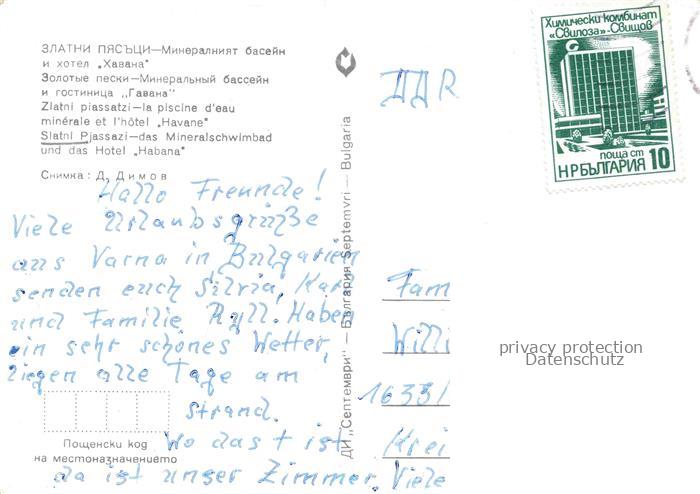 ЗЛАТНИ ПЯСЪЦИ—Минералният басейн
и хотел „Хавана"
Золотые пески—Минеральный бассейн
и гостиница „Гавана"
Zlatni piassatzi—la piscine d'eau
minérale et l'hôtel „Havane"
Slatni Pjassazi—das Mineralschwimbad
und das Hotel „Habana"
Снимка: Д. Димов
Hallo Freunde!
Viele Urlaubsgrüße
aus Varna in Bulgarien
senden euch Silvia, Karo
und Familie Ryll. Haben
ein sehr schönes Wetter,
liegen alle Tage am
Strand.
Wo das + ist
da ist unser Zimmer. Viele
Пощенски код
на местоназначението
ДИ „Септември" — България Septemvri — Bulgaria
DDR
Fam
Willi
16331
Krei
Химически комбинат
„Свилоза"-Свищов
поща ст
НР БЪЛГАРИЯ 10
privacy protection
Datenschutz